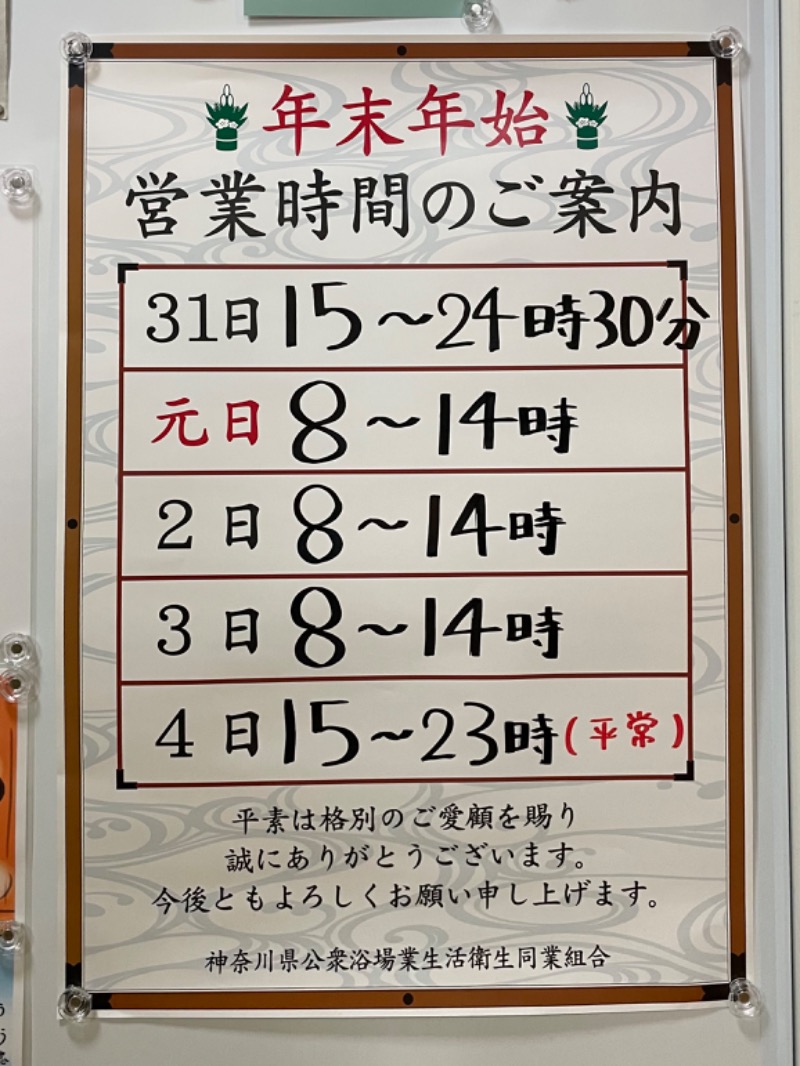 年末年始
営業時間のご案内
31日 15～24時30分
元日 8～14時
2日 8～14時
3日 8～14時
4日 15～23時(平常)
平素は格別のご愛顧を賜り
誠にありがとうございます。
今後ともよろしくお願い申し上げます。
神奈川県公衆浴場業生活衛生同業組合